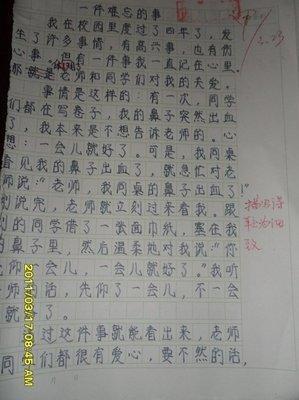 一件难忘的事
我在校园里度过了四年了，发
生了许多事情，有高兴事，也有伤
心事，但有一件我一直记在心里，
那就是老师和同学们对我的关爱。
事情是这样的：有一次，同学
们都在写卷子，我的鼻子突然出血
了，我本来是不想告诉老师的。心
想：一会儿就好了。可是，我同桌
看见我的鼻子出血了，就急忙对老
师说："老师，我同桌的鼻子出血了！"
刚说完，老师就立刻过来看我。跟
的同学借了一张面巾纸，塞在我
的鼻子里，然后温柔地对我说："你
先仰一会儿，一会儿就好了。"我听
师的话，先仰了一会儿，不一会
就 了。
过这件事就能看出来，老师
同 们都很有爱心，要不然的话，
描写得
较为细
致
3.23
2011/03/17 08:45 AM